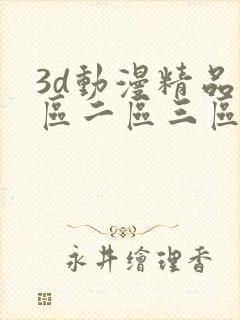 3d動漫精品
區二區三區
永井繪理香